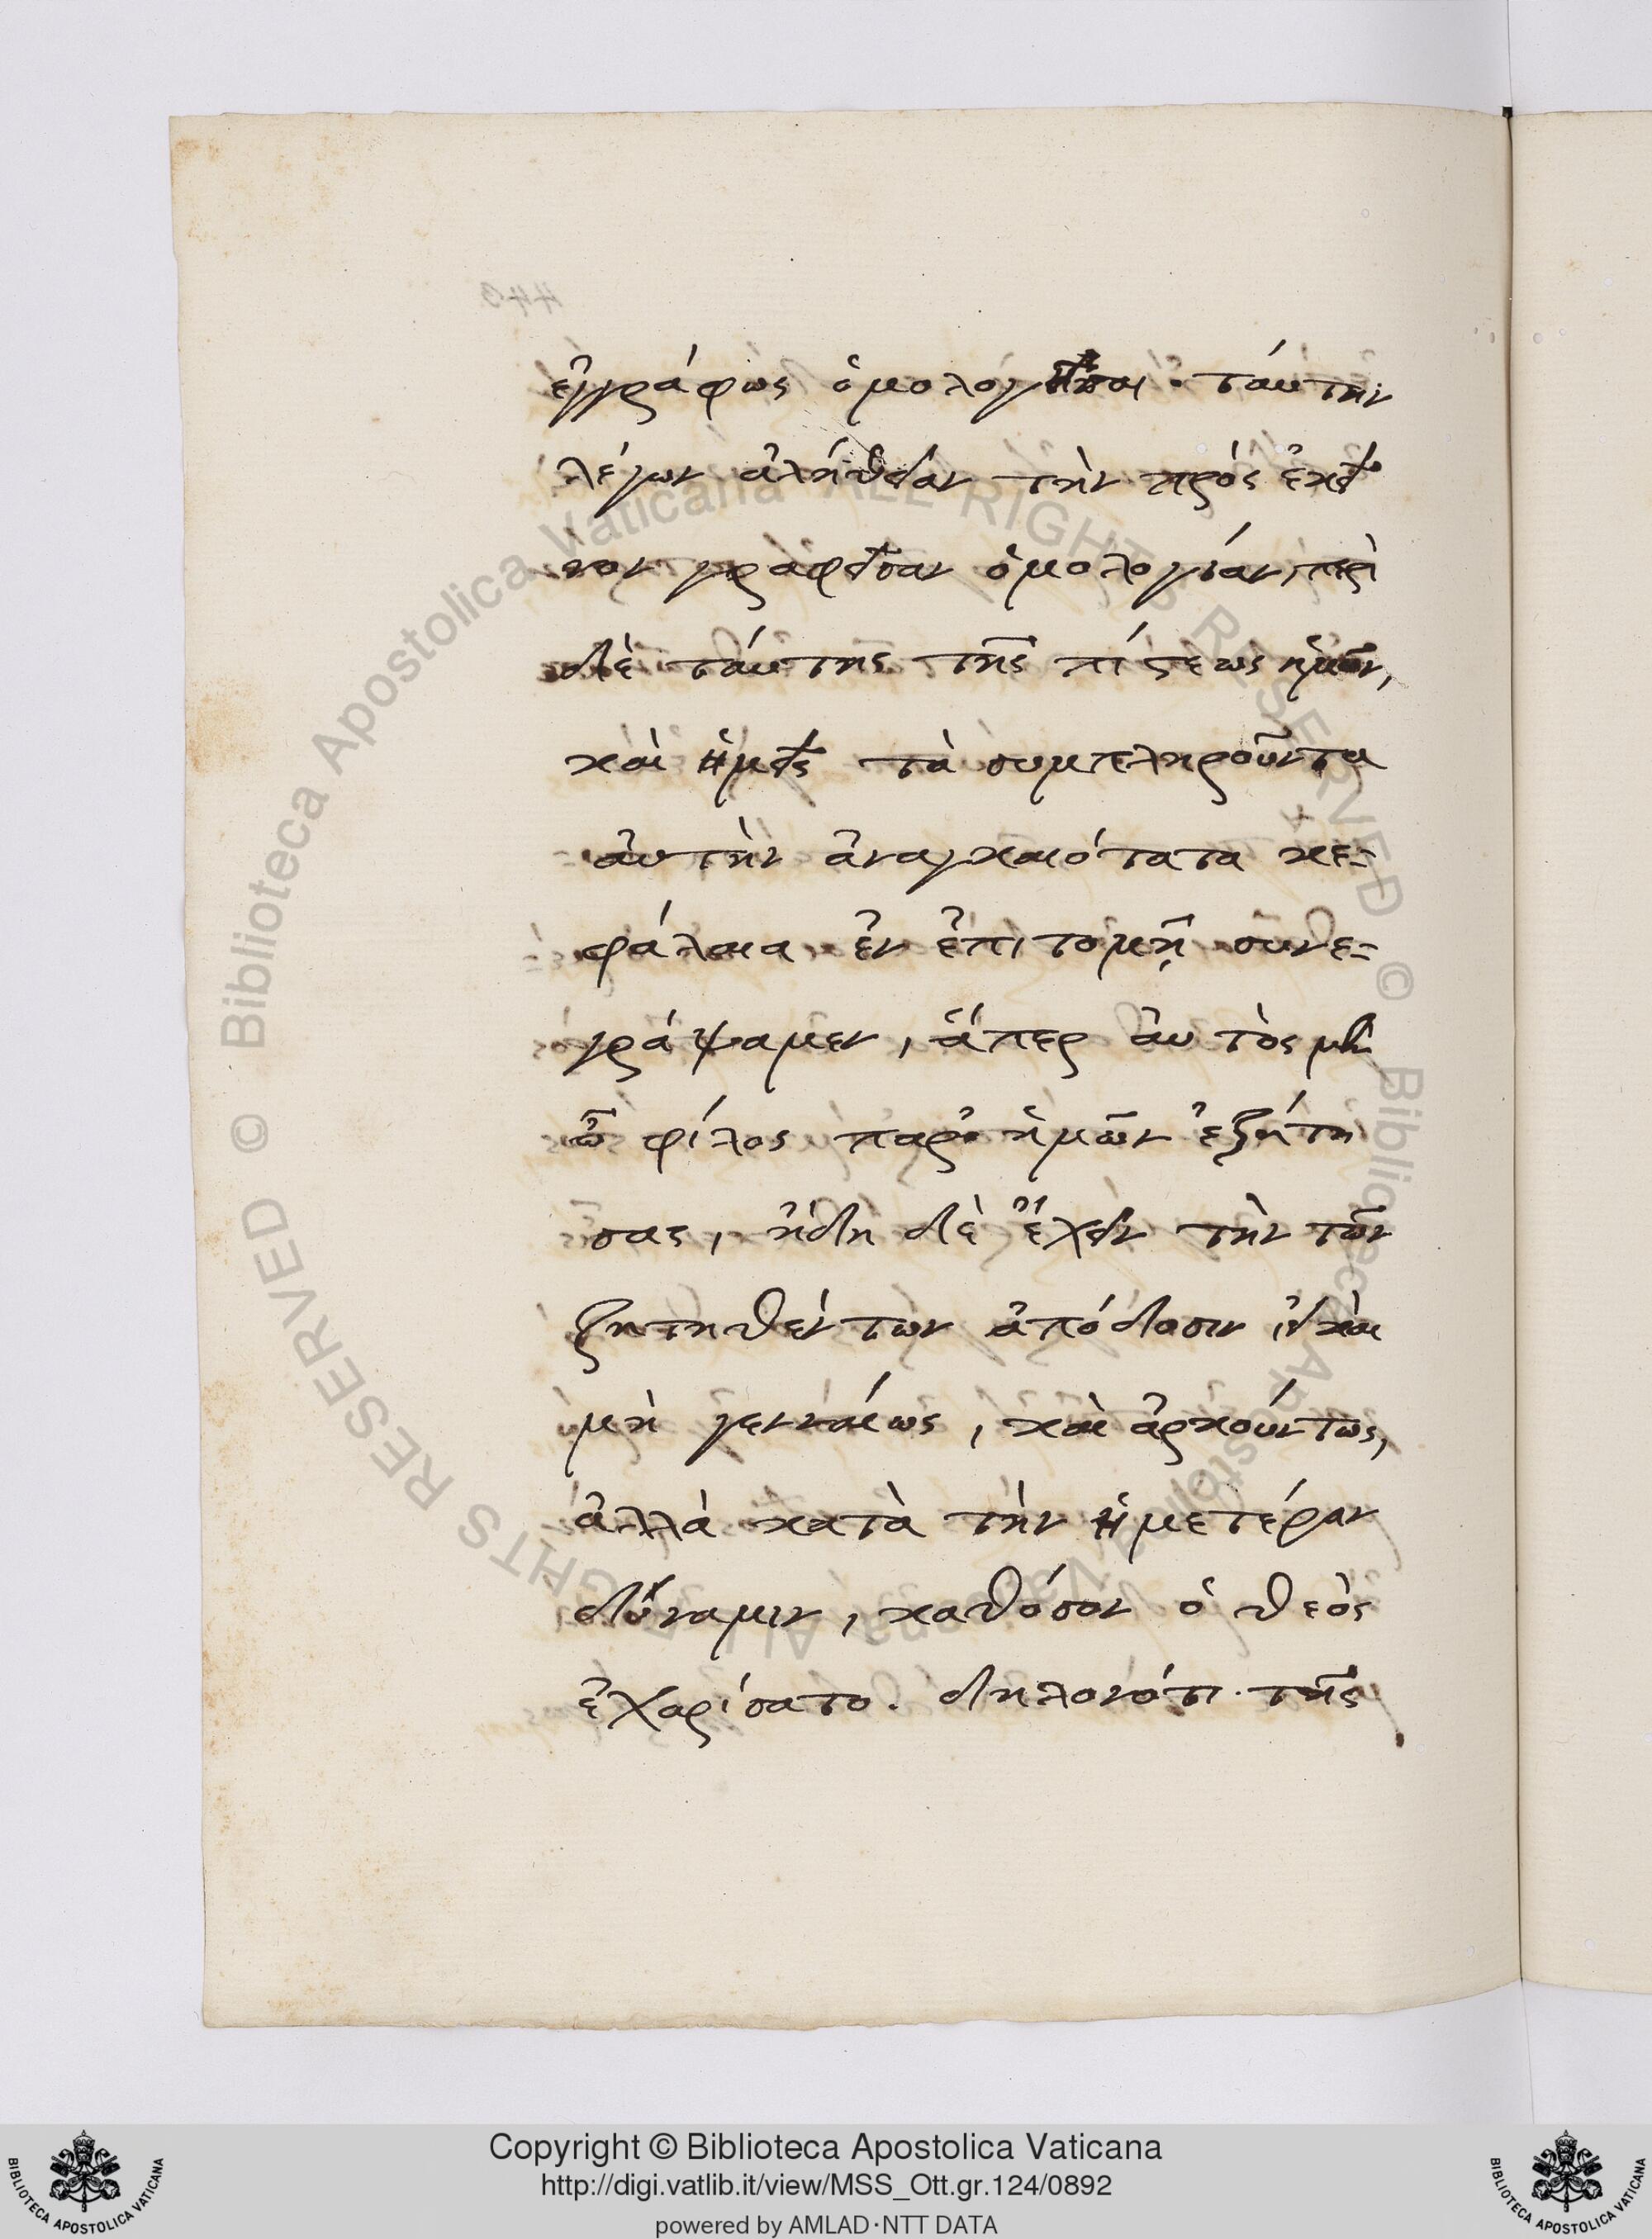 ἐγγράφως ὁμολογῆσαι · ταύτην
λέγων ἀλήθειαν τὴν πρὸς ἐκεῖ
νον γραφεῖσαν ὁμολογίαν, περὶ
δὲ ταύτης τῆς πίστεως ἡμῶν,
καὶ ἡμεῖς τὰ συμπληροῦντα
αὐτὴν ἀναγκαιότατα κε-
φάλαια ἐν ἐπιτομῇ συνε-
γράψαμεν, ἅπερ αὐτὸς μὲν
ὦ φίλος παρ' ἡμῶν ἐζήτη
σας, ἤδη δὲ ἔχειν τὴν τῶν
ζητηθέντων ἀπόδοσιν εἰ καὶ
μὴ γενναίως, καὶ ἀρκούντως,
ἀλλὰ κατὰ τὴν ἡμετέραν
δύναμιν, καθόσον ὁ θεὸς
ἐχαρίσατο. δηλονότι τῆς
Copyright © Biblioteca Apostolica Vaticana
http://digi.vatlib.it/view/MSS_Ott.gr.124/0892
powered by AMLAD·NTT DATA
© Biblioteca Apostolica Vaticana ALL RIGHTS RESERVED © Biblioteca Apostolica Vaticana ALL RIGHTS RESERVED
BIBLIOTECA APOSTOLICA VATICANA
BIBLIOTECA APOSTOLICA VATICANA